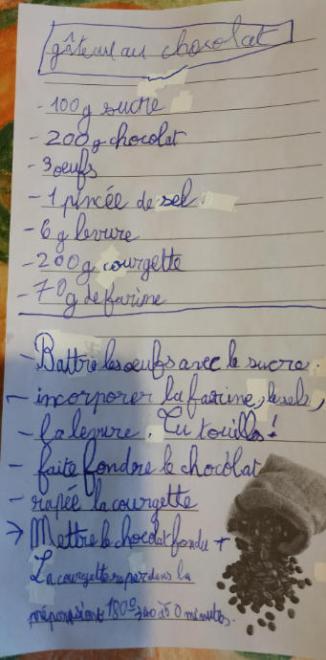 gâteau au chocolat
- 100g sucre
- 200g chocolat
- 3 oeufs
- 1 pincée de sel.
- 6g levure
- 200g courgette
- 70g de farine
- Battre les oeufs avec le sucre.
- incorporer la farine, le sel,
- la levure. Tu touilles!
- faite fondre le chocolat
- rapée la courgette
→ Mettre le chocolat fondu +
La courgette raper dans la
préparation 180°